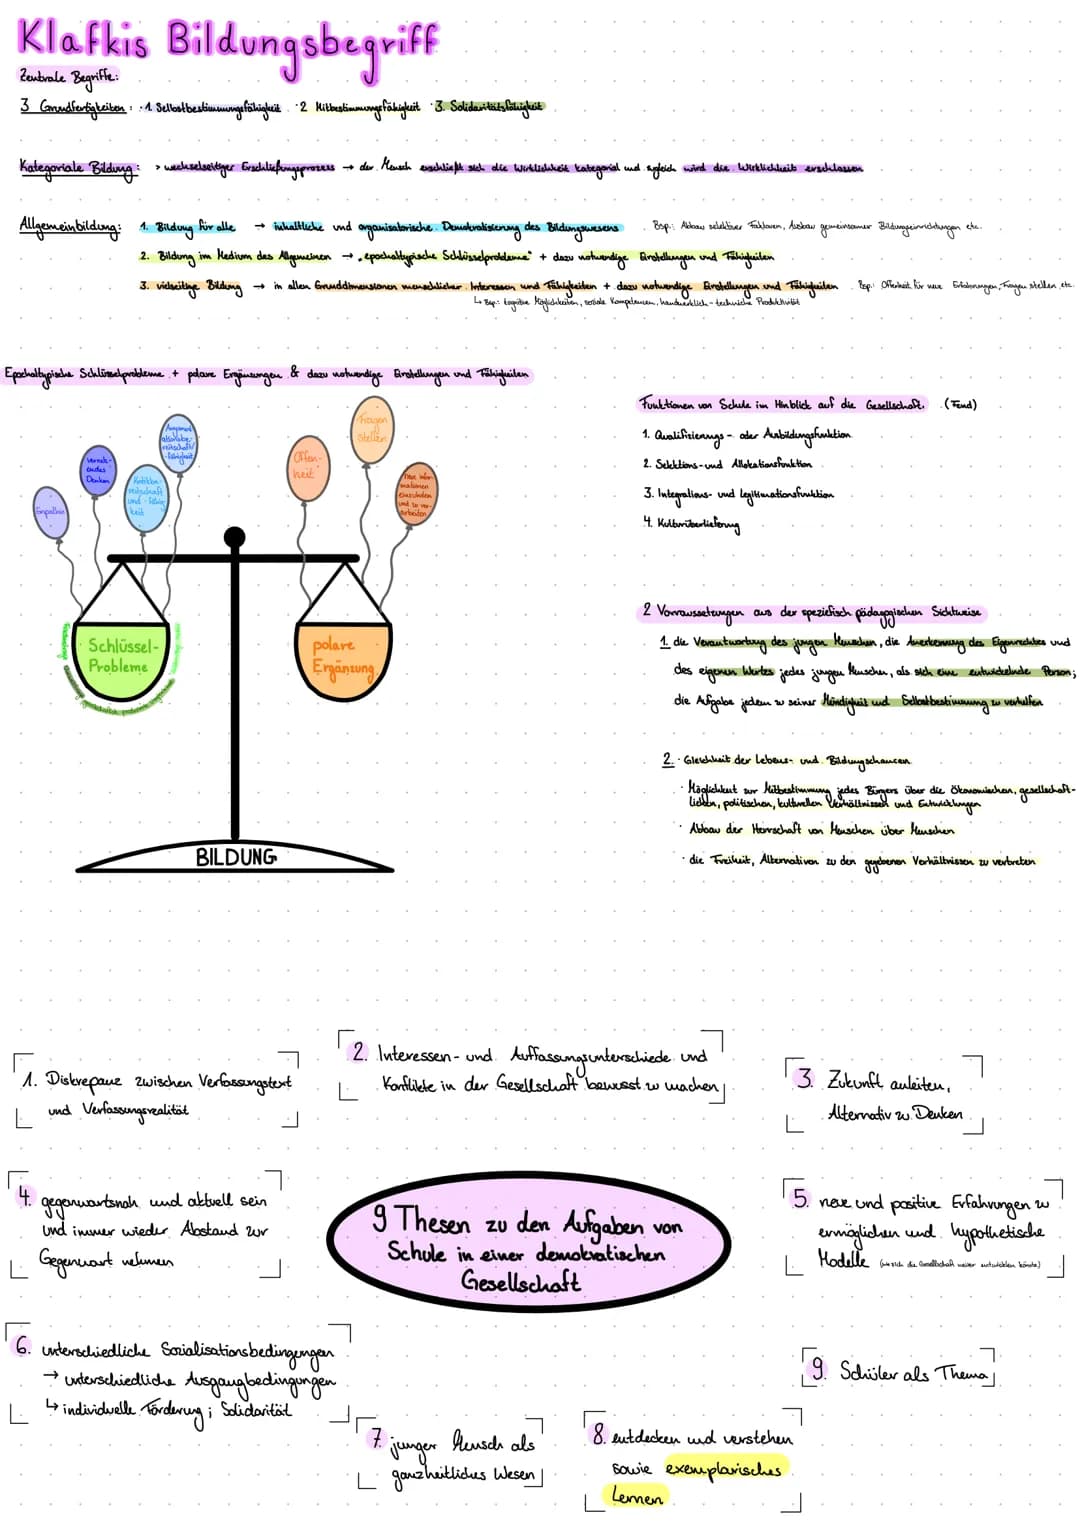 Klafkis Bildungsbegriff
Zentrale Begriffe:
3 Grundfertigkeiten: · 1. Selbstbestimmungsfähigkeit · 2 Mitbestimmungsfähigkeit · 3. Solidaritätsfähigkeit
Kategoriale Bildung: > wechselseitiger Erschließungsprozess → der Mensch erschließt sich die Wirklichkeit kategorial und zugleich wird die Wirklichkeit erschlossen
Allgemeinbildung: 1. Bildung für alle → inhaltliche und organisatorische Demokratisierung des Bildungswesens Bsp.: Abbau selektiver Faktoren, Ausbau gemeinsamer Bildungseinrichtungen etc.
2. Bildung im Medium des Allgemeinen → „epochaltypische Schlüsselprobleme" + dazu notwendige Einstellungen und Fähigkeiten
3. vielseitige Bildung → in allen Grunddimensionen menschlicher Interessen und Fähigkeiten + dazu notwendige Einstellungen und Fähigkeiten Bsp.: Offenheit für neue Erfahrungen, Fragen stellen etc.
↳ Bsp.: kognitive Möglichkeiten, soziale Kompetenzen, handwerklich-technische Produktivität
Epochaltypische Schlüsselprobleme + polare Ergänzungen & dazu notwendige Einstellungen und Fähigkeiten
Empathie
vernetz-
endes
Denken
Kritikbe-
reitschaft
und -fähig-
keit
Argumen-
tationsbe-
reitschaft/
-fähigkeit
Offen-
heit
Fragen
stellen
neue Infor-
mationen
einzuholen
und zu ver-
arbeiten
Schlüssel-
Probleme
polare
Ergänzung
BILDUNG
Funktionen von Schule im Hinblick auf die Gesellschaft. (Fend)
1. Qualifizierungs- oder Ausbildungsfunktion
2. Selektions- und Allokationsfunktion
3. Integrations- und Legitimationsfunktion
4. Kulturüberlieferung
2 Vorraussetzungen aus der speziefisch pädagogischen Sichtweise
1. die Verantwortung des jungen Menschen, die Anerkennung des Eigenrechtes und
des eigenen Wertes jedes jungen Menschen, als sich eine entwickelnde Person;
die Aufgabe jedem zu seiner Mündigkeit und Selbstbestimmung zu verhelfen
2. · Gleichheit der Lebens- und Bildungschancen
· Möglichkeit zur Mitbestimmung jedes Bürgers über die Ökonomischen, gesellschaft-
lichen, politischen, kulturellen Verhältnissen und Entwicklungen
· Abbau der Herrschaft von Menschen über Menschen
· die Freiheit, Alternativen zu den gegebenen Verhältnissen zu vertreten
1. Diskrepanz zwischen Verfassungstext
und Verfassungsrealität
2. Interessen- und Auffassungsunterschiede und
Konflikte in der Gesellschaft bewusst zu machen
3. Zukunft anleiten,
Alternativ zu Denken
4. gegenwartsnah und aktuell sein
und immer wieder Abstand zur
Gegenwart nehmen
9 Thesen zu den Aufgaben von
Schule in einer demokratischen
Gesellschaft
5. neue und positive Erfahrungen zu
ermöglichen und hypothetische
Modelle (wie sich die Gesellschaft weiter entwickeln könnte)
6. unterschiedliche Sozialisationsbedingungen
→ unterschiedliche Ausgangbedingungen
↳ individuelle Förderung; Solidarität
9. Schüler als Thema
7. junger Mensch als
ganzheitliches Wesen
8. entdecken und verstehen
sowie exemplarisches
Lernen